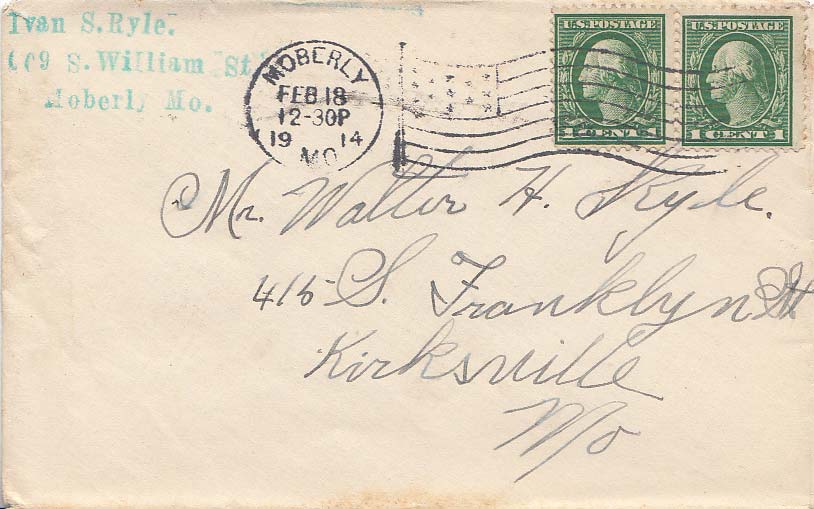 Ivan S. Ryle.
609 S. William St.
Moberly Mo.
MOBERLY
FEB 18
12-30P
19 14
MO.
U.S. POSTAGE
1 CENT 1
U.S. POSTAGE
1 CENT 1
Mr. Walter H. Ryle.
415 S. Franklyn St.
Kirksville
Mo